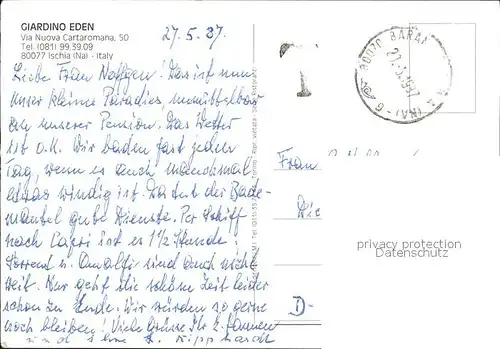 GIARDINO EDEN
Via Nuova Cartaromana, 50
Tel. (081) 99.39.09
80077 Ischia (Na) - Italy
27.5.87
Liebe Frau Naffgen! Das ist nun
unser kleine Paradies, unmittelbar
an unserer Pension. Das Wetter
ist o.k. Wir baden fast jeden
Tag, wenn es auch manchmal
etwas windig ist. Da tut der Bade-
mantel gute Dienste. Per Schiff
nach Capri ist es 1 1/2 Stunde.
Sorrent u. Amalfi sind auch nicht
weit. Nur geht die schöne Zeit leider
schon zu Ende. Wir würden so gerne
noch bleiben! Viele Grüsse Ihr
und
T
80070 BARAN
27.5.1987
(NA) - 6
Frau
D-
privacy protection
Datenschutz